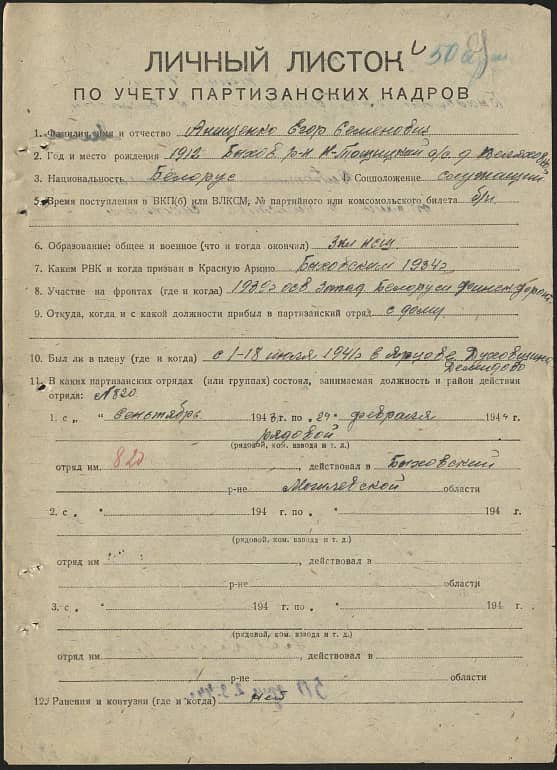 ЛИЧНЫЙ ЛИСТОК
ПО УЧЕТУ ПАРТИЗАНСКИХ КАДРОВ
1. Фамилия, имя и отчество Анищенко Егор Семенович
2. Год и место рождения 1912 Быхов р-н с/с д.
3. Национальность Белорус Соцположение служащий
5. Время поступления в ВКП(б) или ВЛКСМ, № партийного или комсомольского билета б/п
6. Образование: общее и военное (что и когда окончил) 3кл нсш
7. Каким РВК и когда призван в Красную Армию Быховским 1934г
8. Участие на фронтах (где и когда) 1939г осв. Запад Белоруси финск. фронт
9. Откуда, когда и с какой должности прибыл в партизанский отряд с дому
10. Был ли в плену (где и когда) с 1-18 июля 1941г в Ярцове Духовщино
Демидово
11. В каких партизанских отрядах (или группах) состоял, занимаемая должность и район действия
отряда: №820
1. с „ “ сеньтябрь 1943 г. по „24“ февраля 1944 г.
рядовой
(рядовой, ком. взвода и т. д.)
отряд им. 820, действовал в Быховский
р-не Могилевской области
2. с „ “ 194 г. по „ “ 194 г.
(рядовой, ком. взвода и т. д.)
отряд им , действовал в
р-не области
3. с „ “ 194 г. по „ “ 194 г.
(рядовой, ком. взвода и т. д.)
отряд им. , действовал в
р-не области
12. Ранения и контузии (где и когда) нет